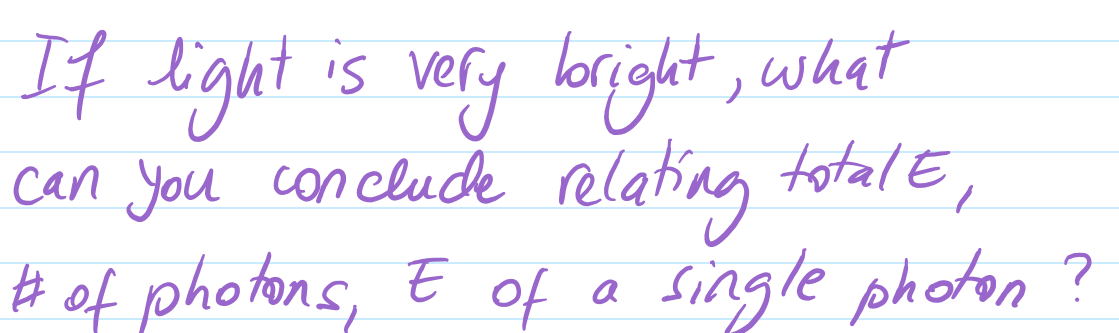 If light is very bright, what
can you conclude relating total E,
# of photons, E of a single photon?